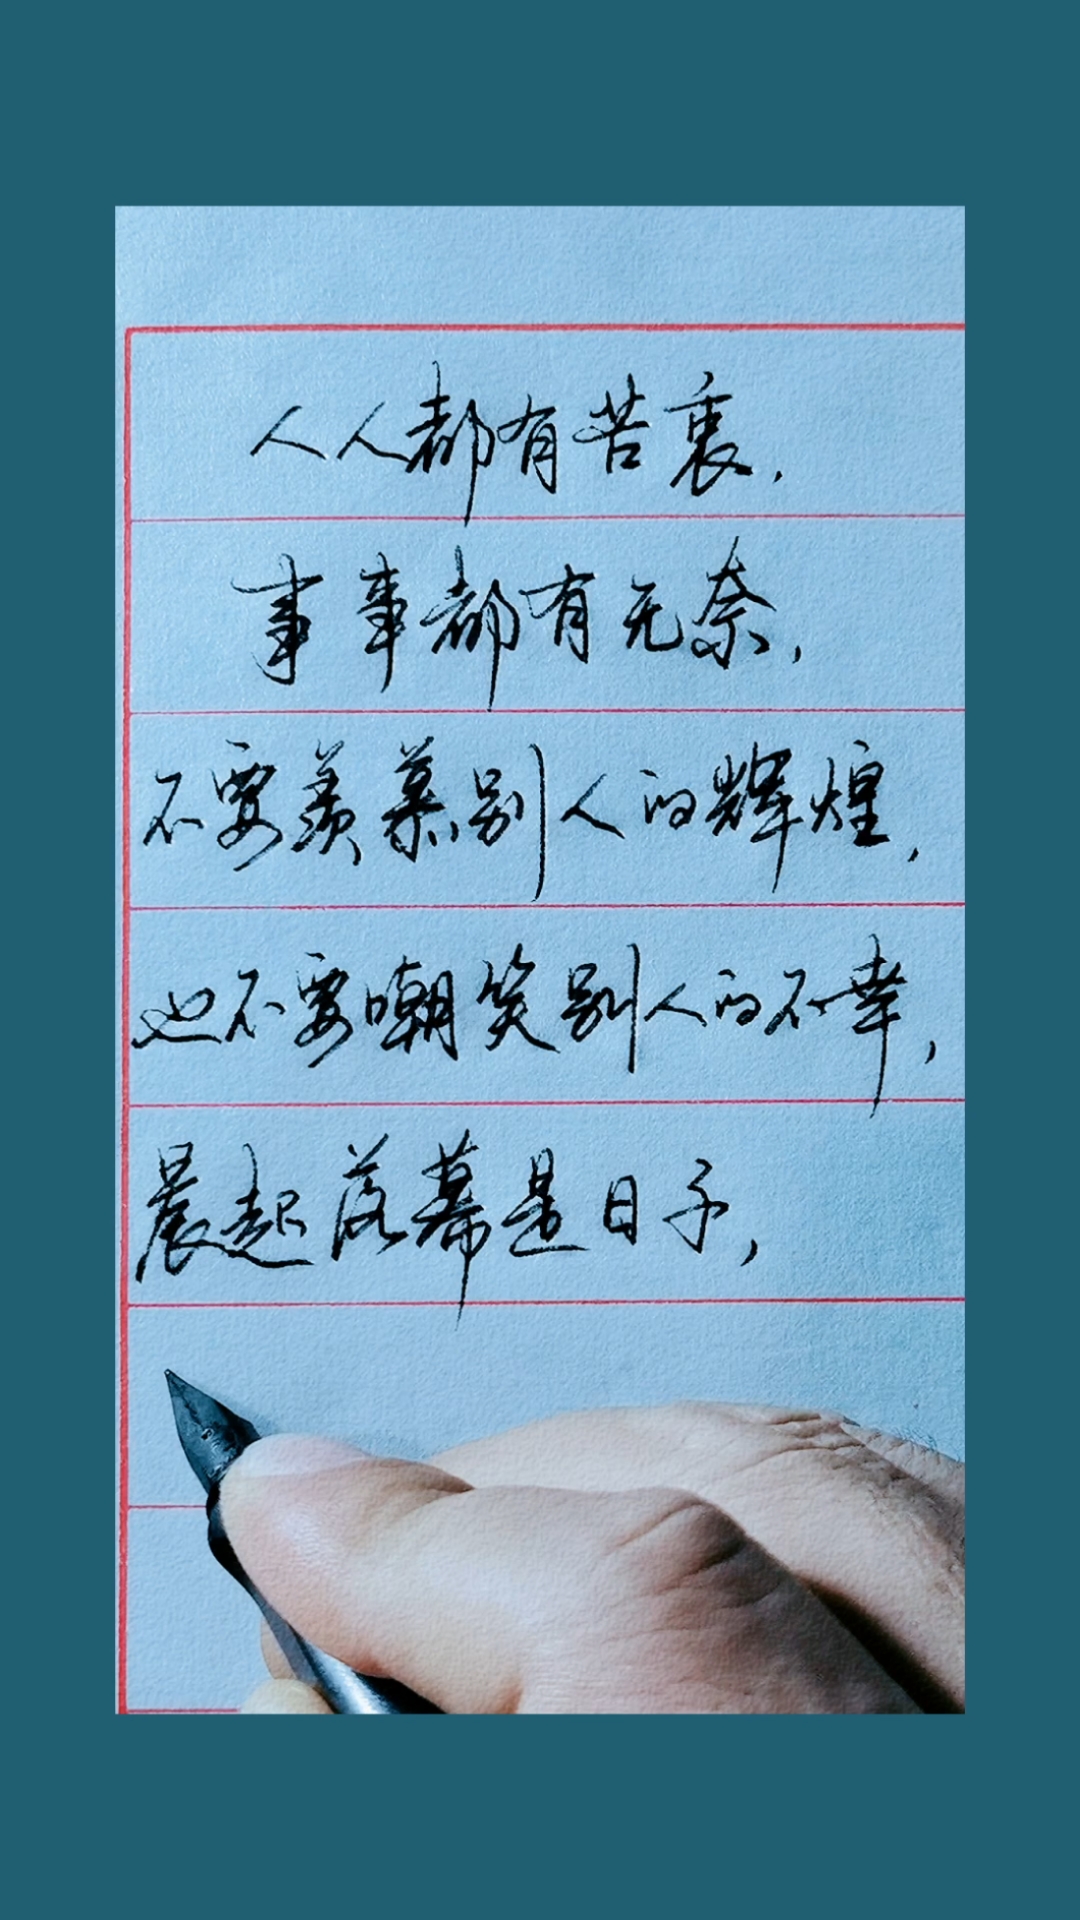 人人都有苦衷，
事事都有无奈，
不要羡慕别人的辉煌，
也不要嘲笑别人的不幸，
晨起落幕是日子，